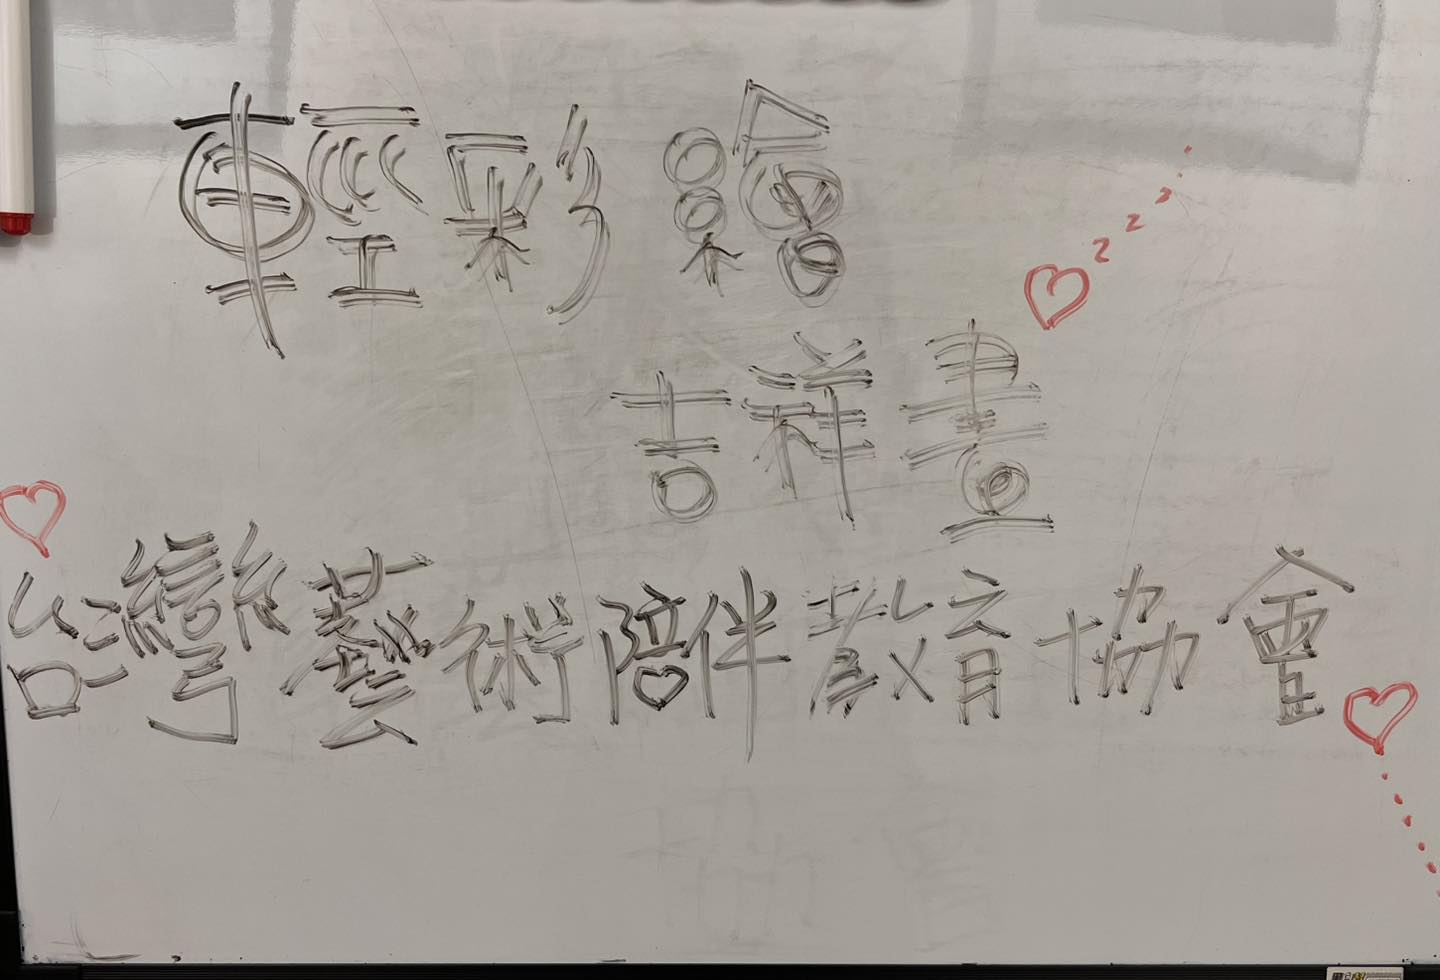 輕彩繪
吉祥畫
台灣藝術陪伴教育協會